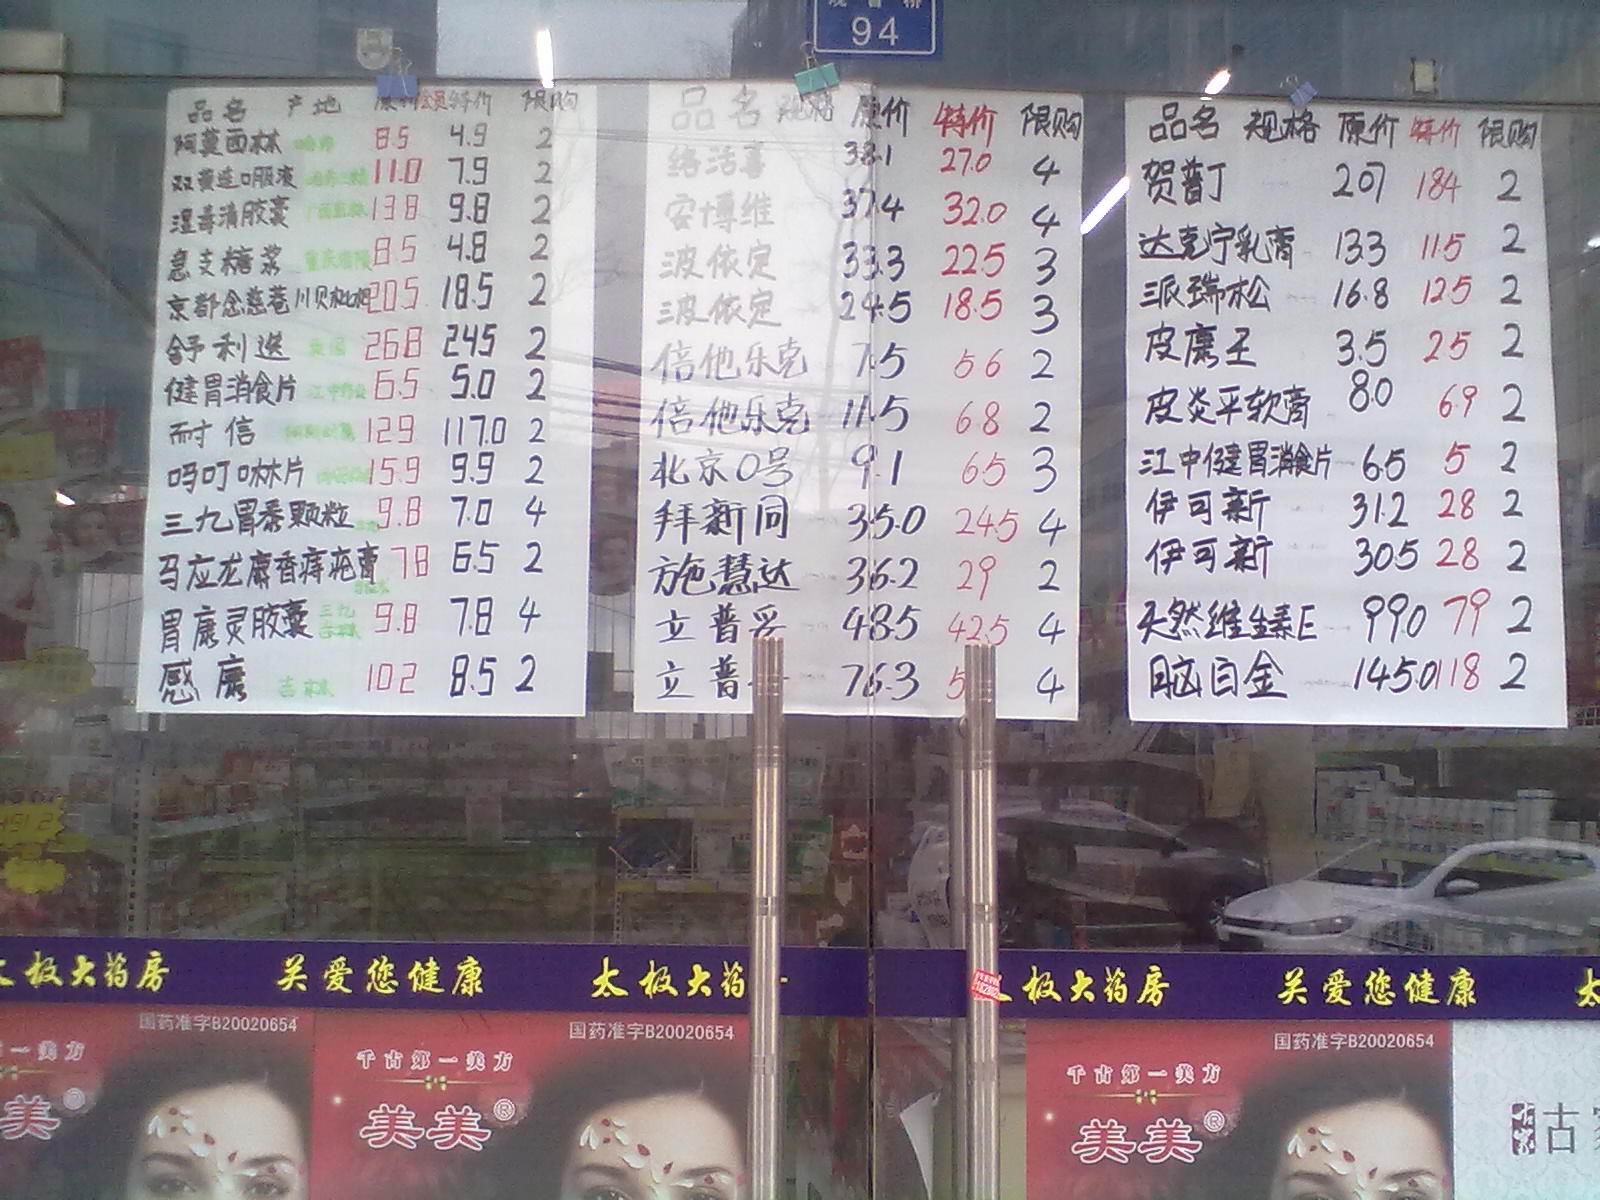 94
品名 产地 原价 会员特价 限购
阿莫西林 8.5 4.9 2
双黄连口服液 11.0 7.9 2
湿毒清胶囊 13.8 9.8 2
急支糖浆 8.5 4.8 2
京都念慈菴川贝枇杷 20.5 18.5 2
舒利迭 268 245 2
健胃消食片 6.5 5.0 2
耐信 129 117.0 2
吗叮啉片 15.9 9.9 2
三九胃泰颗粒 9.8 7.0 4
马应龙麝香痔疮膏 78 6.5 2
胃康灵胶囊 三九 9.8 7.8 4
感康 吉林 102 8.5 2
品名 规格 原价 特价 限购
络活喜 38.1 27.0 4
安博维 37.4 32.0 4
波依定 33.3 22.5 3
波依定 24.5 18.5 3
倍他乐克 7.5 56 2
倍他乐克 11.5 68 2
北京0号 9.1 65 3
拜新同 35.0 24.5 4
施慧达 36.2 29 2
立普妥 48.5 42.5 4
立普 76.3 5 4
品名 规格 原价 特价 限购
贺普丁 207 184 2
达克宁乳膏 133 11.5 2
派瑞松 16.8 125 2
皮康王 3.5 25 2
皮炎平软膏 80 69 2
江中健胃消食片 65 5 2
伊可新 31.2 28 2
伊可新 305 28 2
天然维生素E 990 79 2
脑白金 1450 118 2
太极大药房 关爱您健康 太极大药 极大药房 关爱您健康 太
国药准字B20020654
国药准字B20020654
国药准字B20020654
第一美方
美
千古第一美方
美美®
千古第一美方
美美®
古